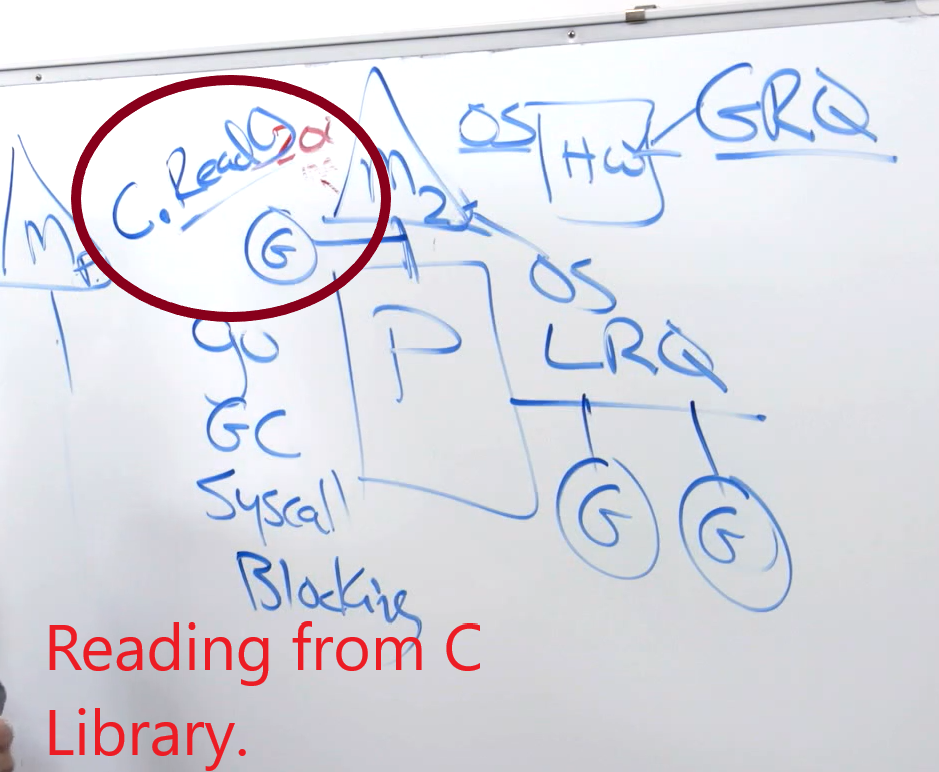 C.Read()
20
M
M2
OS
HW
GRQ
G
OS
P
LRQ
go
GC
Syscall
Blocking
G
G
Reading from C
Library.